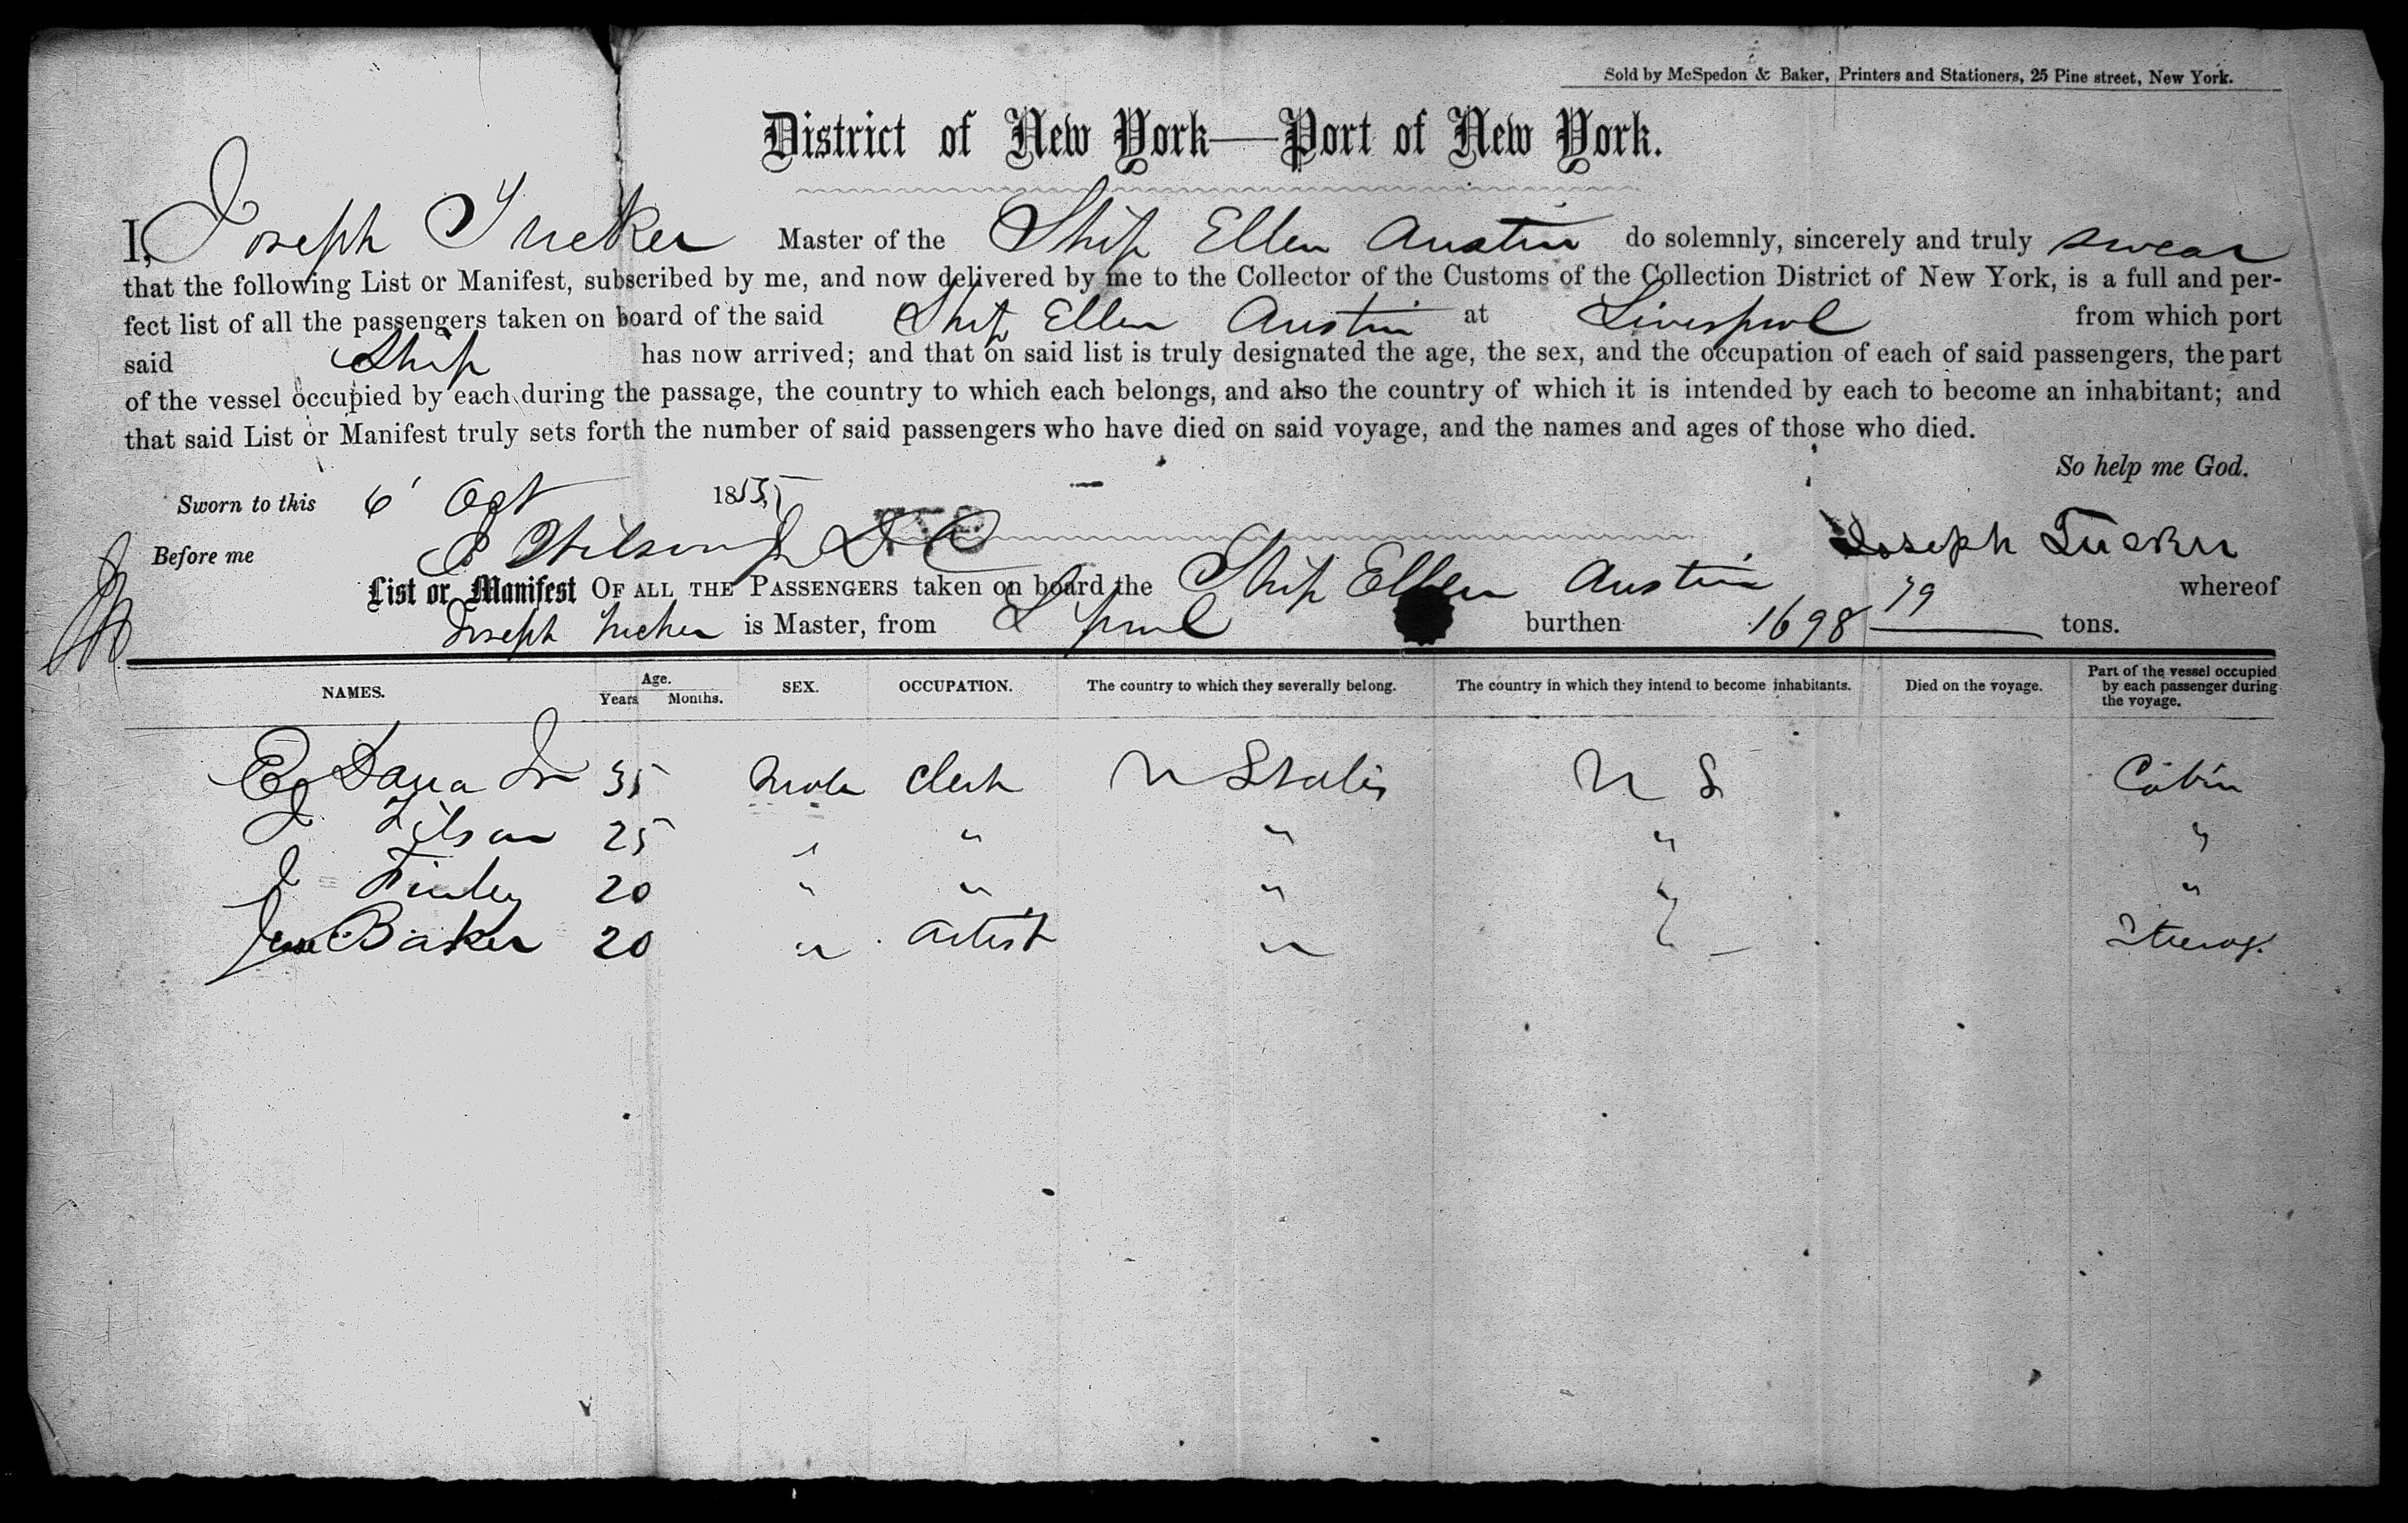 Sold by McSpedon & Baker, Printers and Stationers, 25 Pine street, New York.
District of New York—Port of New York.
I, Joseph Tucker Master of the Ship Ellen Austin do solemnly, sincerely and truly swear
that the following List or Manifest, subscribed by me, and now delivered by me to the Collector of the Customs of the Collection District of New York, is a full and per-
fect list of all the passengers taken on board of the said Ship Ellen Austin at Liverpool from which port
said Ship has now arrived; and that on said list is truly designated the age, the sex, and the occupation of each of said passengers, the part
of the vessel occupied by each during the passage, the country to which each belongs, and also the country of which it is intended by each to become an inhabitant; and
that said List or Manifest truly sets forth the number of said passengers who have died on said voyage, and the names and ages of those who died.
So help me God.
Sworn to this 6 Oct 1855
Before me Joseph Tucker
List or Manifest OF ALL THE PASSENGERS taken on board the Ship Ellen Austin whereof
Joseph Tucker is Master, from L pool burthen 1698 79 tons.
NAMES. Age. Years Months. SEX. OCCUPATION. The country to which they severally belong. The country in which they intend to become inhabitants. Died on the voyage. Part of the vessel occupied by each passenger during the voyage.
Dana Jr 35 Male Clerk U States U S Cabin
J Tilson 25 " " " " "
J Finley 20 " " " " "
Baker 20 " artist " Steerag.